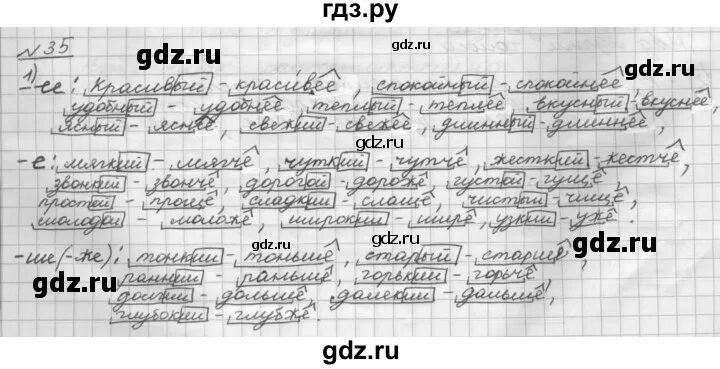 гдз.ру
№ 35
gdz.ru gdz.ru
1) -ее: красивый - красивее, спокойный - спокойнее, gdz.ru
удобный - удобнее, теплый - теплее, вкусный - вкуснее,
ясный - яснее, свежий - свежее, длинный - длиннее,
gdz.ru gdz.ru
-е: мягкий - мягче, чуткий - чутче, жесткий - жестче,
звонкий - звонче, дорогой - дороже, густой - гуще,
простой - проще, сладкий - слаще, чистый - чище,
молодой - моложе, широкий - шире, узкий - уже.
gdz.ru gdz.ru
-ше (-же): тонкий - тоньше, старый - старше,
gdz.ru ранний - раньше, горький - горьче, gdz.ru
долгий - дольше, далекий - дальше,
глубокий - глубже.
gdz.ru
gdz.ru